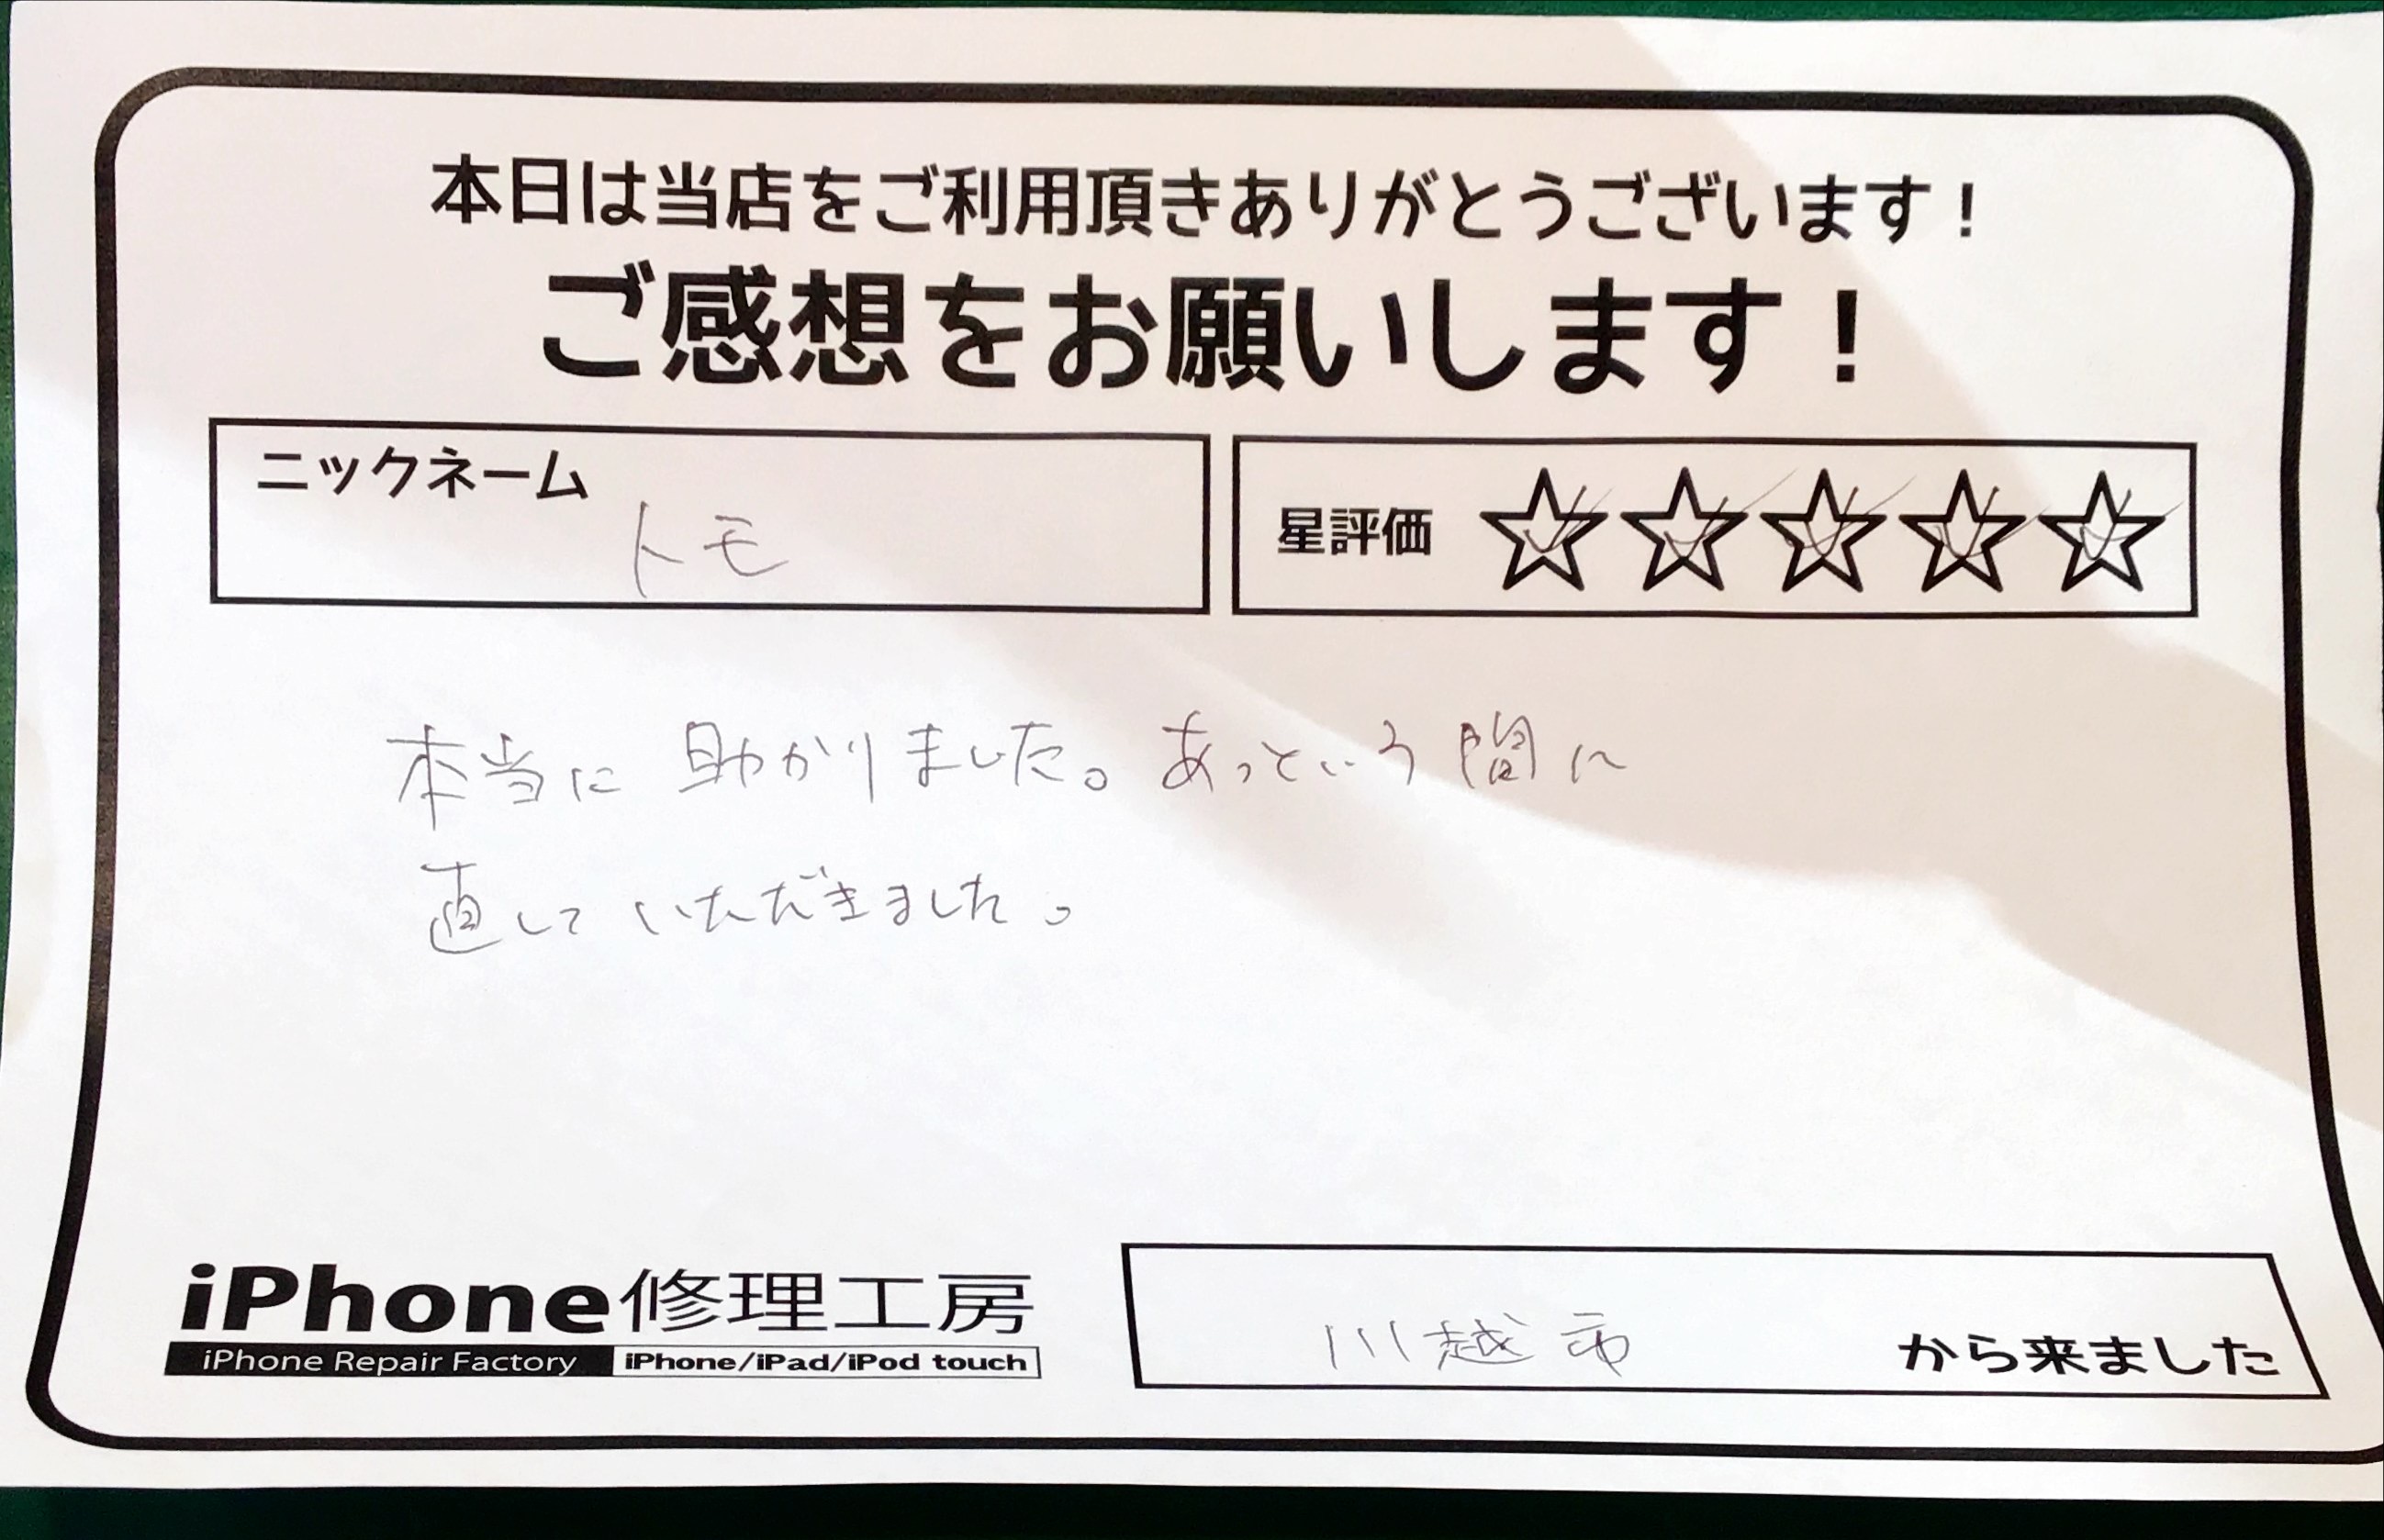 本日は当店をご利用頂きありがとうございます！
ご感想をお願いします！
ニックネーム
トモ
星評価 ☆☆☆☆☆
本当に助かりました。あっという間に
直していただきました。
iPhone修理工房
iPhone Repair Factory iPhone/iPad/iPod touch
川越市 から来ました